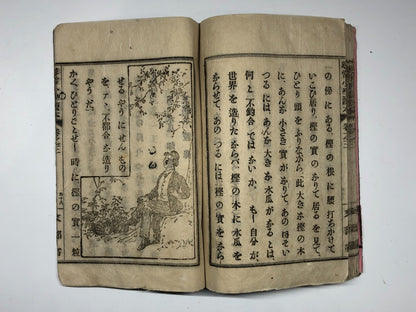 の傍にある、樫の根に腰打ちかけて
いこひ居り、樫の實のなりて居るを見て、
ひとり頭をふりながら、此大きな樫の木
に、あんな小さき實がなりて、あのほそい
つるには、あんな大きな水瓜がなるとは、
何と不都合ではないか、もし自分が、
世界を造りたならば、樫の木に水瓜を
ならせて、あのつるには、樫の實をなら
せるやうにせんもの
を、さて、不都合な造り
やうだ。
かく、ひとりごとせし時に、樫の實一粒